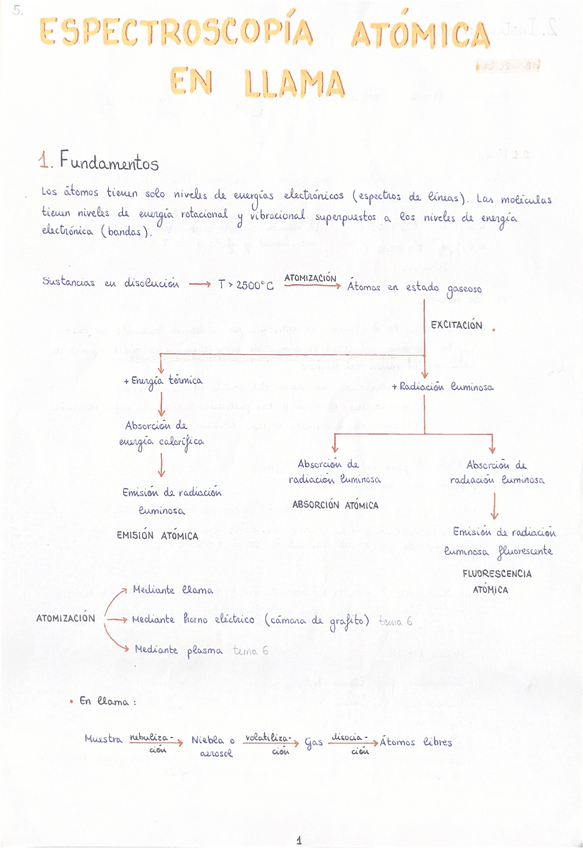 5.
ESPECTROSCOPÍA ATÓMICA
EN LLAMA
1. Fundamentos
Los átomos tienen solo niveles de energías electrónicos (espectros de líneas). Las moléculas
tienen niveles de energía rotacional y vibracional superpuestos a los niveles de energía
electrónica (bandas).
Sustancias en disolución → T > 2500°C ATOMIZACIÓN → Átomos en estado gaseoso
EXCITACIÓN
+ Energía térmica
+ Radiación luminosa
Absorción de
energía calorífica
Emisión de radiación
luminosa
EMISIÓN ATÓMICA
Absorción de
radiación luminosa
ABSORCIÓN ATÓMICA
Absorción de
radiación luminosa
Emisión de radiación
luminosa fluorescente
FLUORESCENCIA
ATÓMICA
ATOMIZACIÓN
Mediante llama
Mediante horno eléctrico (cámara de grafito) tema 6
Mediante plasma tema 6
• En llama :
Muestra nebuliza-ción → Niebla o aerosol volatiliza-ción → Gas disocia-ción → Átomos libres
1